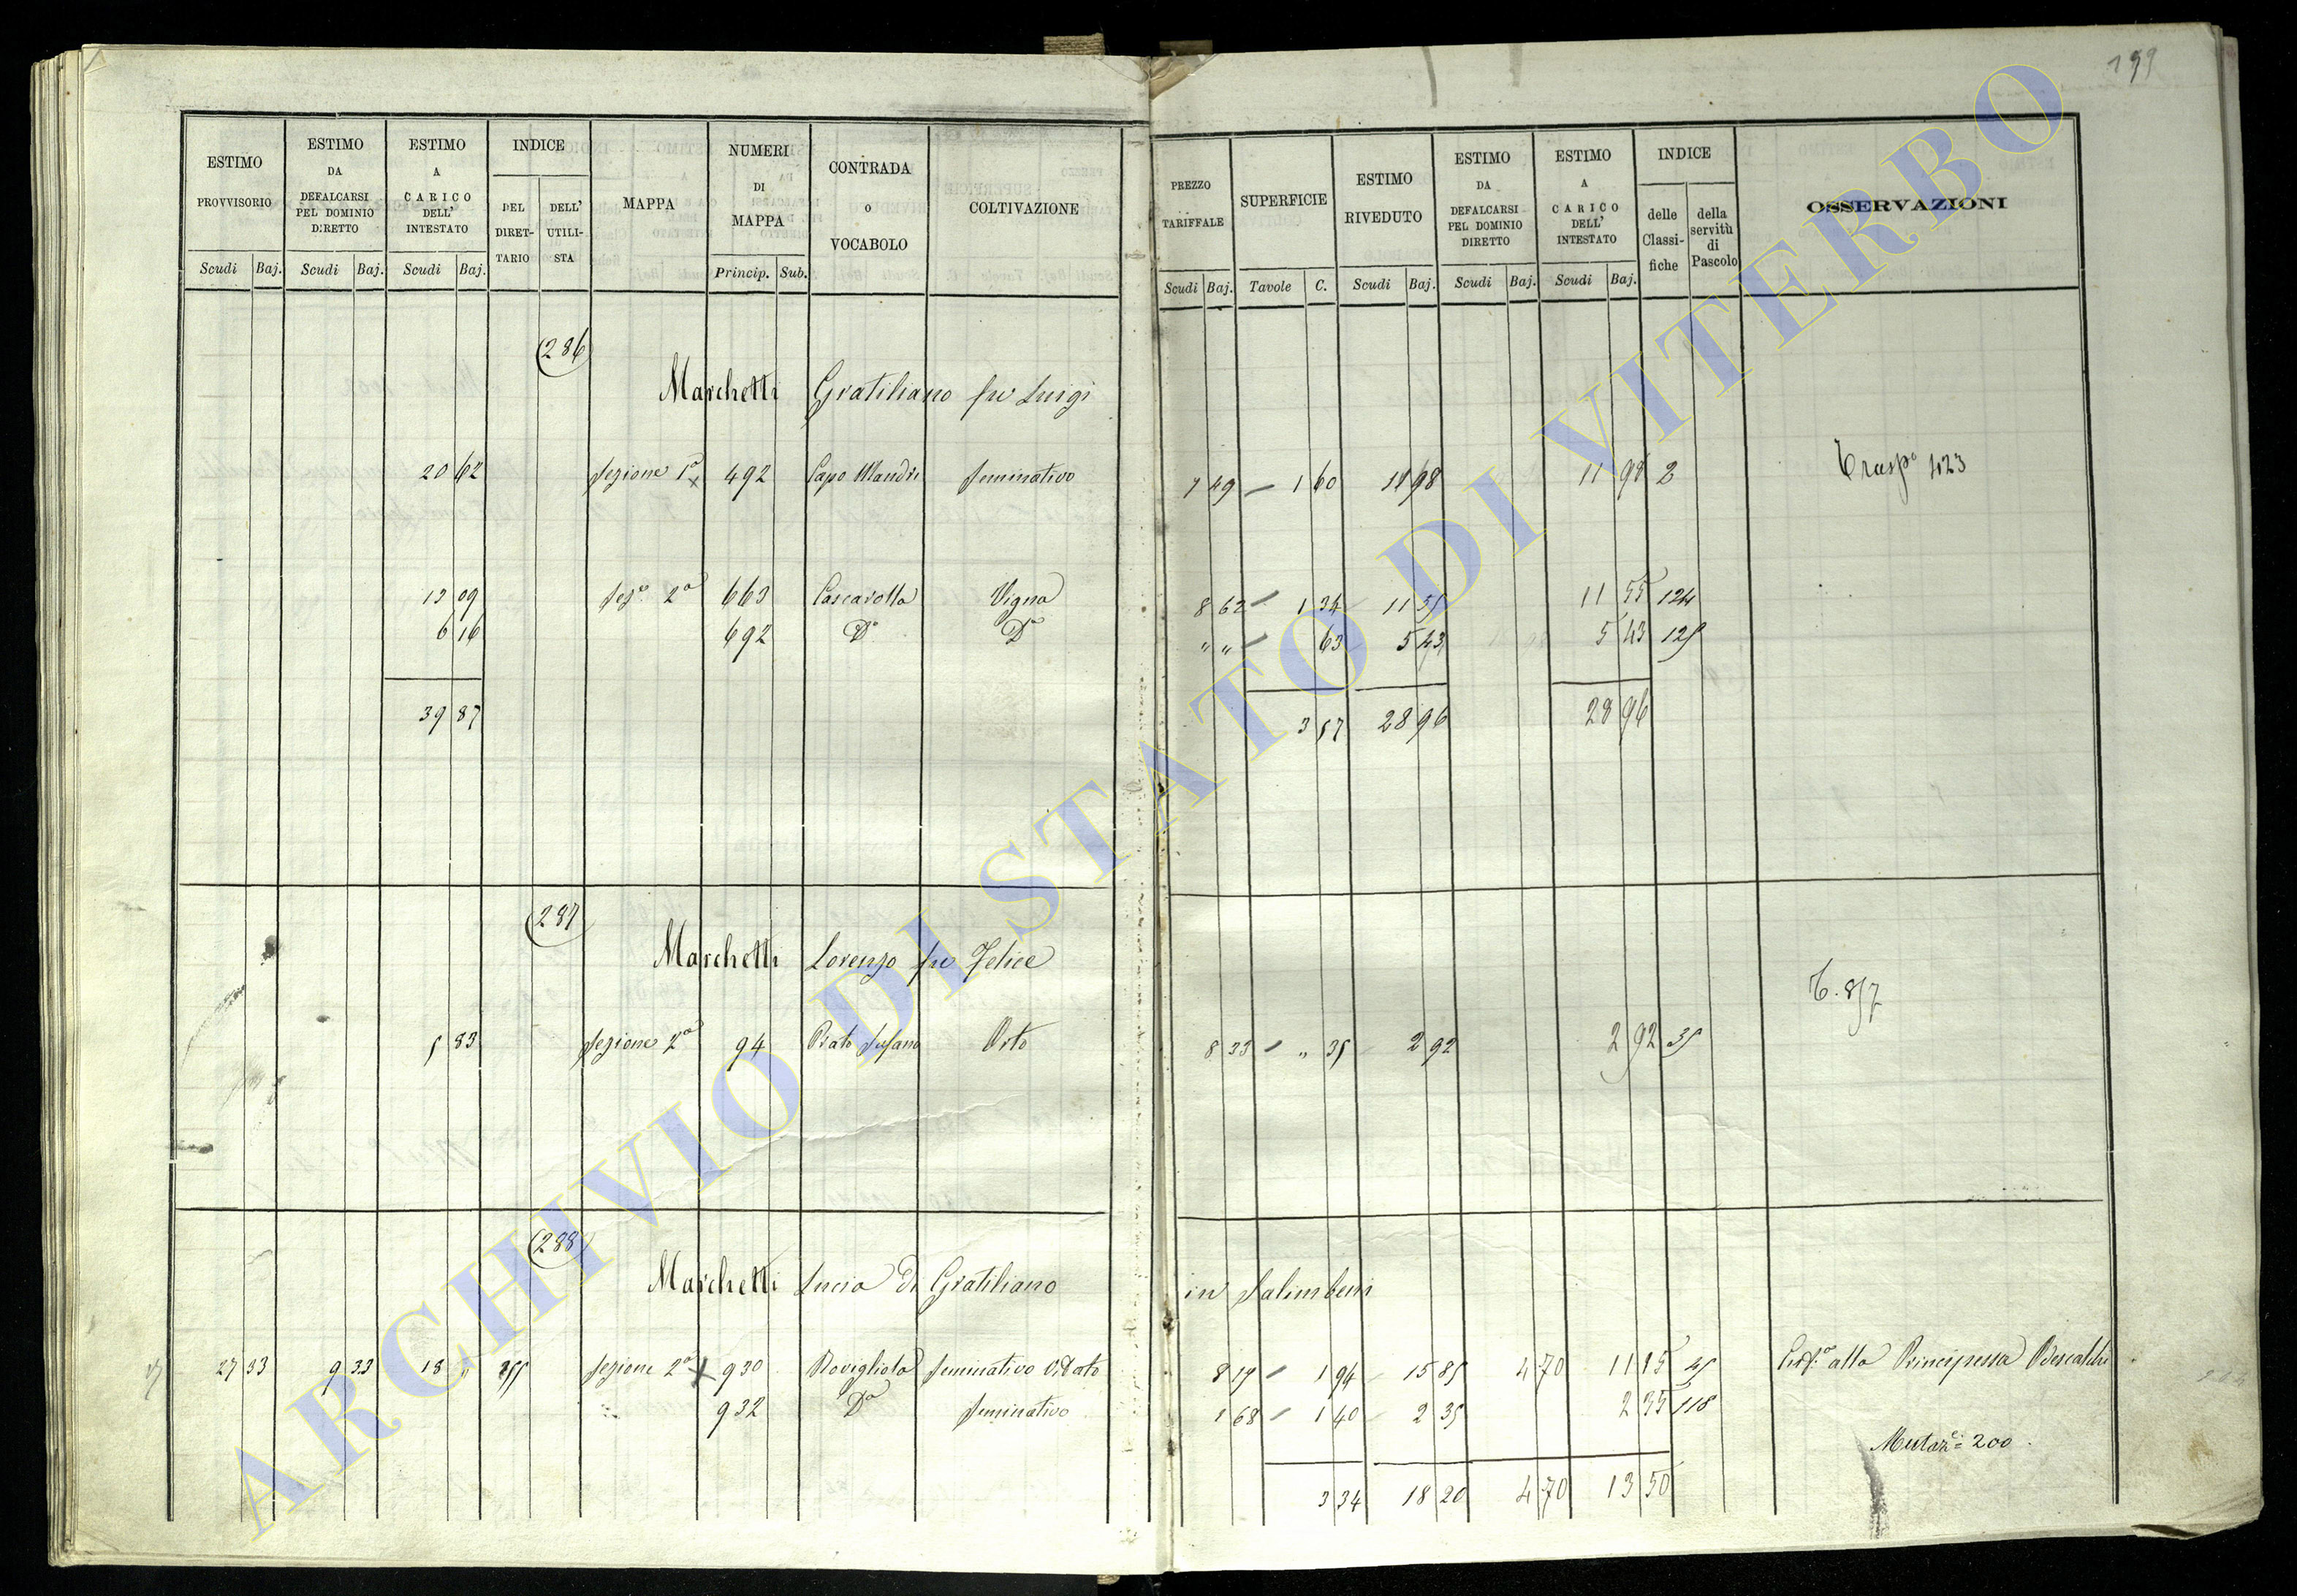 199
ESTIMO PROVVISORIO | ESTIMO DA DEFALCARSI PEL DOMINIO DIRETTO | ESTIMO A CARICO DELL' INTESTATO | INDICE DEL DIRETTARIO | DELL' UTILISTA | MAPPA | NUMERI DI MAPPA | CONTRADA O VOCABOLO | COLTIVAZIONE | PREZZO TARIFFALE | SUPERFICIE | ESTIMO RIVEDUTO | ESTIMO DA DEFALCARSI PEL DOMINIO DIRETTO | ESTIMO A CARICO DELL' INTESTATO | INDICE delle Classifiche | della servitù di Pascolo | OSSERVAZIONI
Scudi Baj. | Scudi Baj. | Scudi Baj. | Princip. Sub. | Scudi Baj. | Tavole C. | Scudi Baj. | Scudi Baj. | Scudi Baj.
286
Marchetti Gratiliano fu Luigi
20 62 Sezione 1ª 492 Capo Mandri Seminativo 7 49 1 60 11 98 11 98 2 Trasp° 423
13 09 Sez° 2ª 663 Cascarotta Vigna 8 62 1 34 11 55 11 55 124
6 16 692 D° D° " " 63 5 43 5 43 125
39 87 3 57 28 96 28 96
287
Marchetti Lorenzo fu Felice
T. 857
5 83 Sezione 2ª 94 Prato Sujano Orto 8 33 " 35 2 92 2 92 35
288
Marchetti Lucia di Gratiliano in Salimbeni
27 33 9 33 18 " Sezione 2ª 930 Rovigliola Seminativo Vitato 8 17 1 94 15 85 4 70 11 15 45 alla Principessa Odescalchi
932 D° Seminativo 1 68 1 40 2 35 2 35 118
Mutaz.e 200
3 34 18 20 4 70 13 50
ARCHIVIO DI STATO DI VITERBO